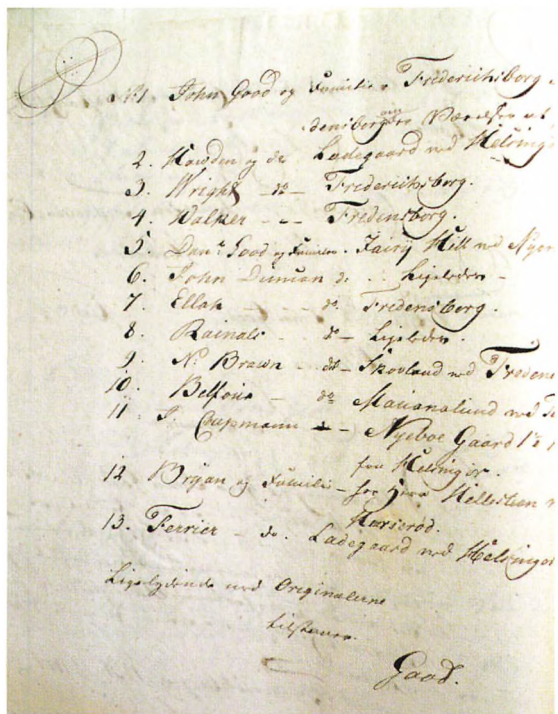 No 1 John Good og Familie Frederichsborg.
densborg Værelser
2. Howden og do Ladegaard ved Helsing
3. Wright - do - Frederichsborg.
4. Walker - - Fredensborg.
5. Danl Good og Familie. Fairy Hill ved
6. John Duncan do Ligeledes -
7. Ellah - do Fredensborg.
8. Rainals - do - Ligeledes.
9. N. Brown - do - Skovlund ved Fredens
10. Belfour - do Marianalund ved
11. Chapmann - Nyeboe Gaard
fra Helsingør.
12 Bryan og Familie - hos Herr
13. Ferrier - do. Ladegaard ved Helsingør
Ligelydende med Originalerne
tilstaaer
Good.